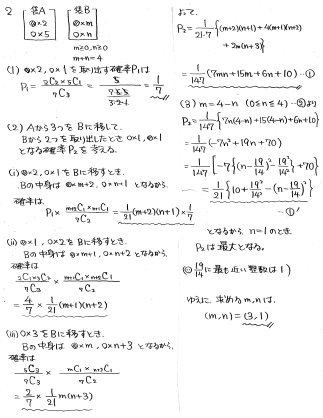 2. 袋A 袋B
◎×2 ◎×m
0×5 0×n
m≧0, n≧0
m+n=4
(1) ◎×2, 0×1 を取り出す確率P₁は
P₁ = 2C2×5C1 / 7C3 = 5 / (7·6·5 / 3·2·1) = 1/7
(2) Aから3つをBに移して、
Bから2つを取り出したとき ◎×1, 0×1
となる確率P₂を考える。
(i) ◎×2, 0×1 をBに移すとき、
Bの中身は ◎×m+2, 0×n+1 となるから、
確率は
P₁× m+2C1×n+1C1 / 7C2 = 1/21 (m+2)(n+1)×1/7
(ii) ◎×1, 0×2をBに移すとき、
Bの中身は ◎×m+1, 0×n+2 となるから、
確率は
2C1×5C2 / 7C3 × m+1C1×n+2C1 / 7C2
= 4/7 × 1/21 (m+1)(n+2)
(iii) 0×3 をBに移すとき、
Bの中身は ◎×m, 0×n+3 となるから、
確率は
5C3 / 7C3 × mC1×n+3C1 / 7C2
= 2/7 × 1/21 m(n+3)
よって、
P₂ = 1/21·7 {(m+2)(n+1)+4(m+1)(n+2)
+2m(n+3)}
= 1/147 (7mn+15m+6n+10) …①
(3) m=4-n (0≦n≦4) …②より
P₂ = 1/147 {7n(4-n)+15(4-n)+6n+10}
= 1/147 (-7n²+19n+70)
となるから、n=1のとき
P₂は最大となる。
(∵ 19/14に最も近い整数は1)
ゆえに、求めるm,nは、
(m,n)=(3,1)